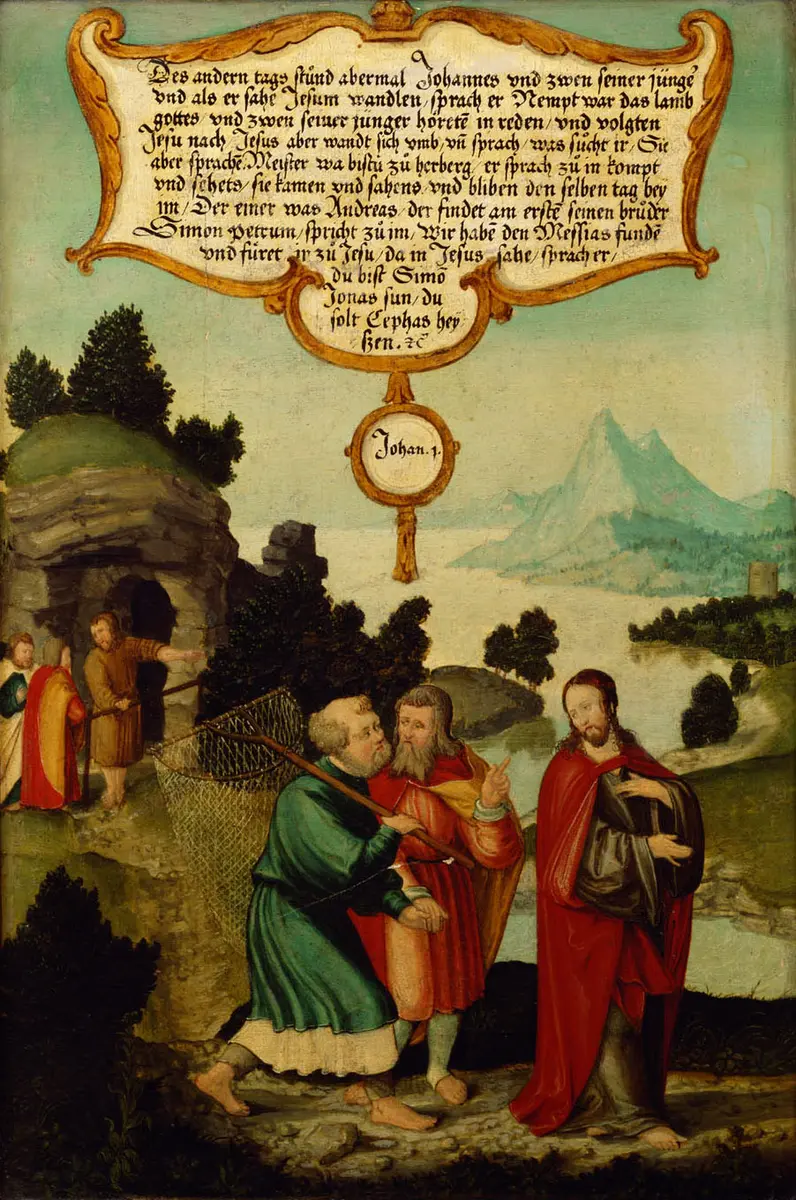 Des andern tags stůnd abermal Johannes vnd zwen seiner jünge᷑
vnd als er sahe Jesum wandlen / sprach er Nempt war das lamb
gottes vnd zwen seiner junger höretē in reden / vnd volgten
Jesu nach Jesus aber wandt sich vmb / vn̄ sprach / was sůcht ir / Sie
aber sprachē Meister wa bistu zů herberg / er sprach zů in kompt
vnd sehets / sie kamen vnd sahens vnd bliben den selben tag bey
im / Der einer was Andreas der findet am erstē seinen brůder
Simon Petrum / spricht zů im / Wir habē den Messias fundē
vnd füret in zů Jesu / da in Jesus sahe / sprach er /
du bist Simō
Jonas sun / du
solt Cephas hey
szen . ꝛc̄
Johan. 1.